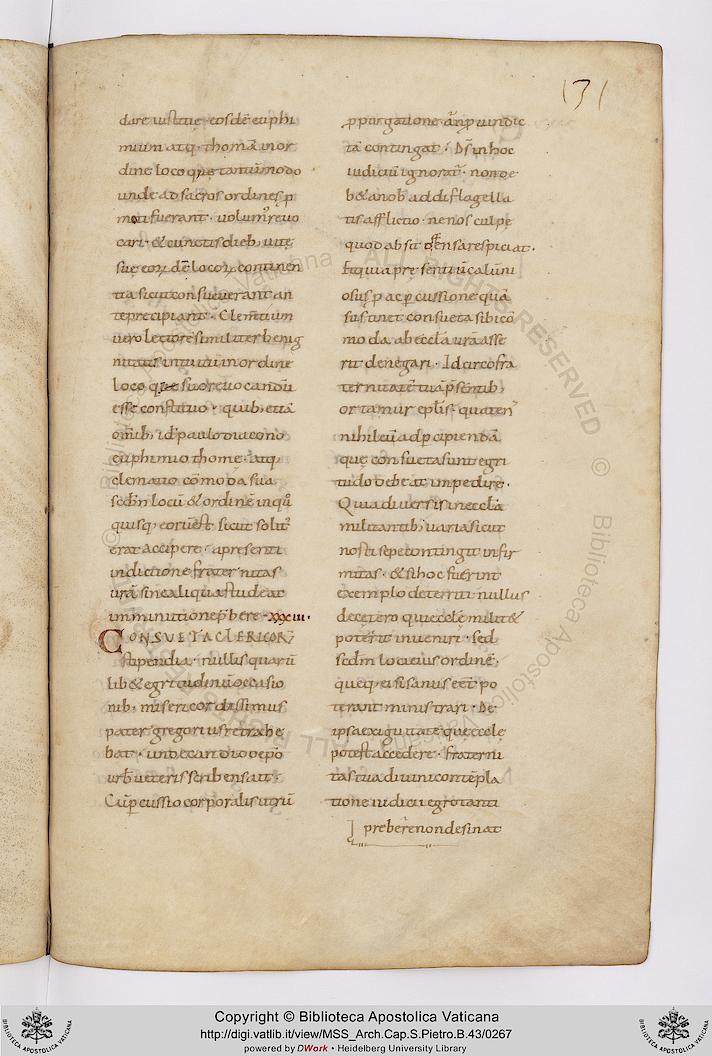 131
dare iustitię · eosdē euphi
mium atq; thomā in or
dine loco que tantūmodo
unde ad sacros ordines ꝑ
moti fuerant · volum᷒ reuo
cari · & cunctis dieb; uitę
suę eorꝝ dē locorꝝ continen
tia sicut consueuerant an
te precipiant · Clemtium
uero lectorē similiter benig
nitatis intuitu in ordine
loco que suo reuocandū
esse constituo · quib; etiā
omīb; id ē paulo diacono
euphimio thome · atq;
clematio cōmoda sua
scdm locū & ordinē in quū
quisq; eorū est sicut solit᷒
erat accipere · a presenti
indictione fraternitas
urā sine aliqua studeat
imminutione p̄bere · xxxiii ·
CONSUETA CLERICORꝜ
stipendia · nullus quarū
lib& egritudinū occasio
nib; misericordissimus
pater gregorius retrahe
bat · unde candido ep̄o
urb̄ ueteris scribens ait ·
Cū ꝑcussio corporalis utrū
ꝓ purgatione an ꝓ uindic
ta contingat · Ds̄ in hoc
iudiciū ignorat᷒ · non de
b& a nob addi flagella
tis afflictio · ne nos culpe
quod absit offensa respiciat ·
Et quia presentiū calūni
osus ꝑ ac ꝑcussione quā
sustinet consueta sibi cō
moda ab eccla ura asse
rit denegari · Idcirco fra
ternitatē tuā p̄sentib;
ortamur eplis · quaten᷒
nihil eū ad ꝑcipiendā
quę consueta sunt egri
tudo debeat impedire ·
Quia diuersis in eccla
militantib; uaria sicut
nosti sepe contingit infir
mitas · & si hoc fuerint
exemplo deterriti nullus
de cetero qui eccle milit&
poterit inueniri · sed
scdm loci eius ordinē ·
queiq; ei si sanus eēt po
terant ministrari · De
ipsa exiguitate que eccle
potest accedere · fraterni
tas tua diuini contēpla
tione iudicii egrotanti
preberē non desinat
Copyright © Biblioteca Apostolica Vaticana
http://digi.vatlib.it/view/MSS_Arch.Cap.S.Pietro.B.43/0267
powered by DWork • Heidelberg University Library